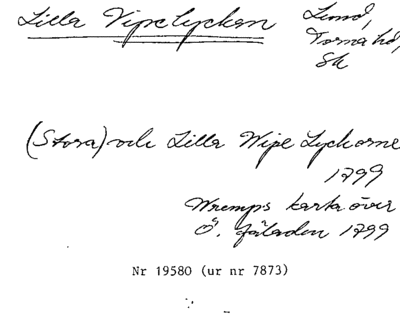 Lilla Vipelyckan
Lund,
Torna hd,
Sk
(Stora) och Lilla Wipe Lyckorne
1799
Wremps karta över
Ö. fäladen 1799
Nr 19580 (ur nr 7873)